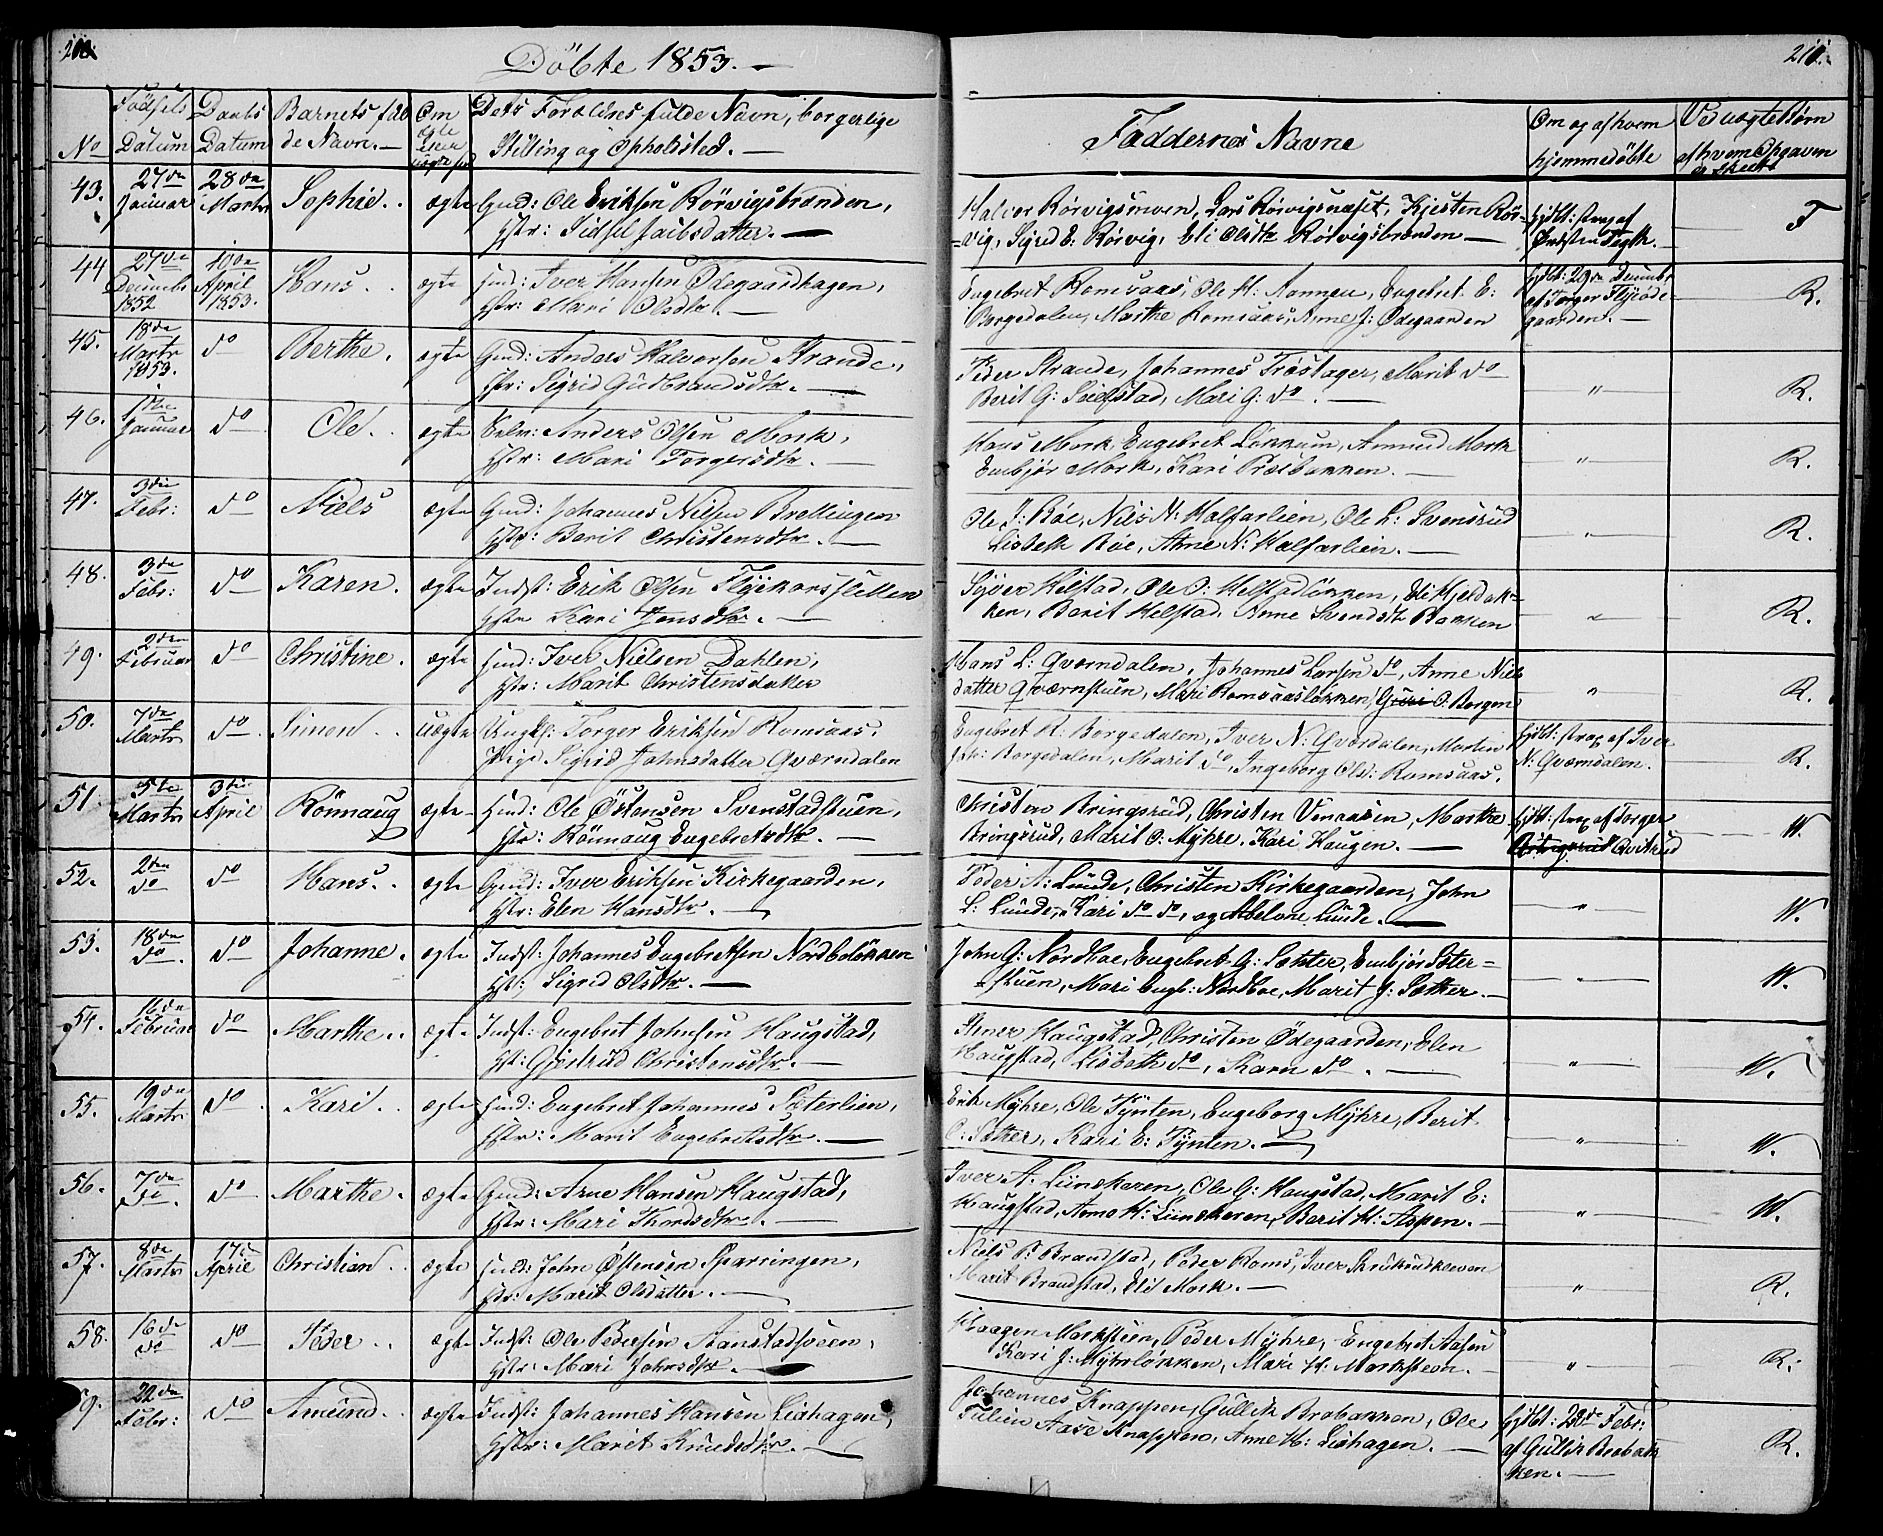 Döbte 1853. —
No Födsels Datum Daabs Datum Barnets fulde Navn. — Om ægte eller uægte Dets Forældres fulde Navn, borgerlige Stilling og Opholdsted. —
Faddernes Navne Om og af hvem hjemmedöbte Ved uægte Børn af hvem Opgaven er skeet
43. 27de Januar 28de Marts Sophie. ægte Gmd: Ole Eriksen Rörvigsbraaden,
Hstr: Sidsel Jacobsdatter. —
Halvor Rörvigsmoen, Lars Rörvigsnæset, Kjersten Rör-
vig, Sigrid E: Rörvig, Eli Olsdtr Rörvigsbraaden —
T
44 27de Decembr 1852 10de April 1853. Hans. ægte Hmd: Iver Hansen Ödegaardhagen,
Hstr: Mari Olsdtr. —
Engebret Romsaas, Ole H: Aannen, Engebret E:
Borgedalen, Marthe Romsaas, Anne J: Ödegaarden
hjdbt: 29de Decembr
gaarden. —
R.
45. 18de Marts 1853. do Berthe. ægte Gmd: Anders Halvorsen Strande,
Hstr: Sigrid Gudbrandsdtr. —
Peder Strande, Johannes Tröstager, Marit do
Berit G: Sülfstad, Mari G: do. —
" R.
46. Januar do Ole. ægte Anders Olsen Mork,
Hstr: Mari Torgersdtr. —
Hans Mork, Engebret Lökkum, Amund Mork
Embjör Mork, Kari Præsbakken. —
" R.
47. 3die Febr: do Niels ægte Gmd: Johannes Nielsen Brettingen
Hstr: Berit Christensdtr. —
Ole J: Böe, Nils N: Halfarlien, Ole L: Svensrud
Lisbeth Böe, Anne N: Halfarlien. —
" R.
48. 3de Febr: do Karen. ægte Indst: Erik Olsen Flyekorssletten
Hstr Kari Jensdtr. —
Syver Kilstad, Ole O: Helstadlökken, Eli Kjeldak-
ken, Berit Helstad, Anne Svendsdtr Bakken
" R.
49. 2den Februar do Christine. ægte Hmd: Iver Nielsen Dahlen,
Hstr: Marit Christensdatter
Hans L: Qværndalen, Johannes Larsen do, Anne Niels
datter Qværnstuen, Mari Romsaaslökken, Guri O: Borgen
" R.
50. 7de Marts do. Simen. uægte Ungkl: Torger Eriksen Romsaas,
Pige Sigrid Johnsdatter Qværndalen
Engebret K: Borgedalen, Iver N: Qværdalen, Martin
Borgedalen, Marit do, Ingeborg Ols: Romsaas.
hjdbt: strax af Iver
N: Qværndalen.
R.
51 5te Marts 3die April Rönnaug ægte Hmd: Ole Östensen Svenstadstuen,
Hstr: Rönnaug Engebretsdtr. —
Christen Bringsrud, Christen Vinaasen, Marthe
Bringsrud, Marit O: Myhre, Kari Haugen. —
hjdbt: strax af Torger
Qvitrud
W.
52. 2den do do Hans. ægte Gmd: Iver Eriksen Kirkegaarden,
Hstr: Elen Hansdtr. —
Peder A: Lunde, Christen Kirkegaarden, John
L: Lunde, Kari do do, og Abelone Lunde. —
" W.
53. 18de do. do Johanne. ægte Indst: Johannes Engebretsen Nordbolökken
Hst: Sigrid Olsdtr. —
John G: Nordboe, Engebret G: Sæther, Embjör Sæter-
stuen, Mari Engb: Nordboe, Marit J: Sæther. —
" W.
54. 16de Februar do Marthe. ægte Indst: Engebret Johnsen Haugstad,
Hst: Gjertrud Christensdtr. —
Haugstad, Christen Ödegaarden, Elen
Haugstad, Lisbeth do, Karn do. —
" W.
55. 19de Marts do Kari. ægte Hmd: Engebret Johannes Sæterlien,
Hstr: Marit Engebretsdtr. —
Erik Myhre, Ole Tynten, Engeborg Myhre, Berit
O: Sæther, Kari E: Tynten. —
" W.
56. 7de do. do Marthe. ægte Gmd: Arne Hansen Haugstad,
Hstr: Mari Thordsdtr. —
Iver A: Liinskeren, Ole G: Haugstad, Marit E:
Haugstad, Arne H: Liinskeren, Berit H: Aspen. —
" W.
57. 8de Marts 17de April Christian. ægte John Östensen Sparringen,
Hstr: Marit Olsdatter. —
Niels P: Brandstad, Peder Roms, Iver
Marit Brandstad, Eli Mork. —
" R.
58. 16de do do Peder. ægte Indst: Ole Pedersen Aanstadsveen,
Hstr: Mari Johnsdtr. —
Haagen Markstuen, Peder Myhre, Engebret Aasen
Kari J: Myhrlökken, Mari H: Marksteen. —
" R:
59. 22de Febr: do Amund. ægte Indst: Johannes Hansen Liahagen,
Hstr: Marit Knudsdtr. —
Johannes Knappen, Gullik Brobakken, Ole
Aase Knappen, Anne H: Liahagen. —
hjdbt: 22de Febr:
af Gullik Brobak
ken. —
R.